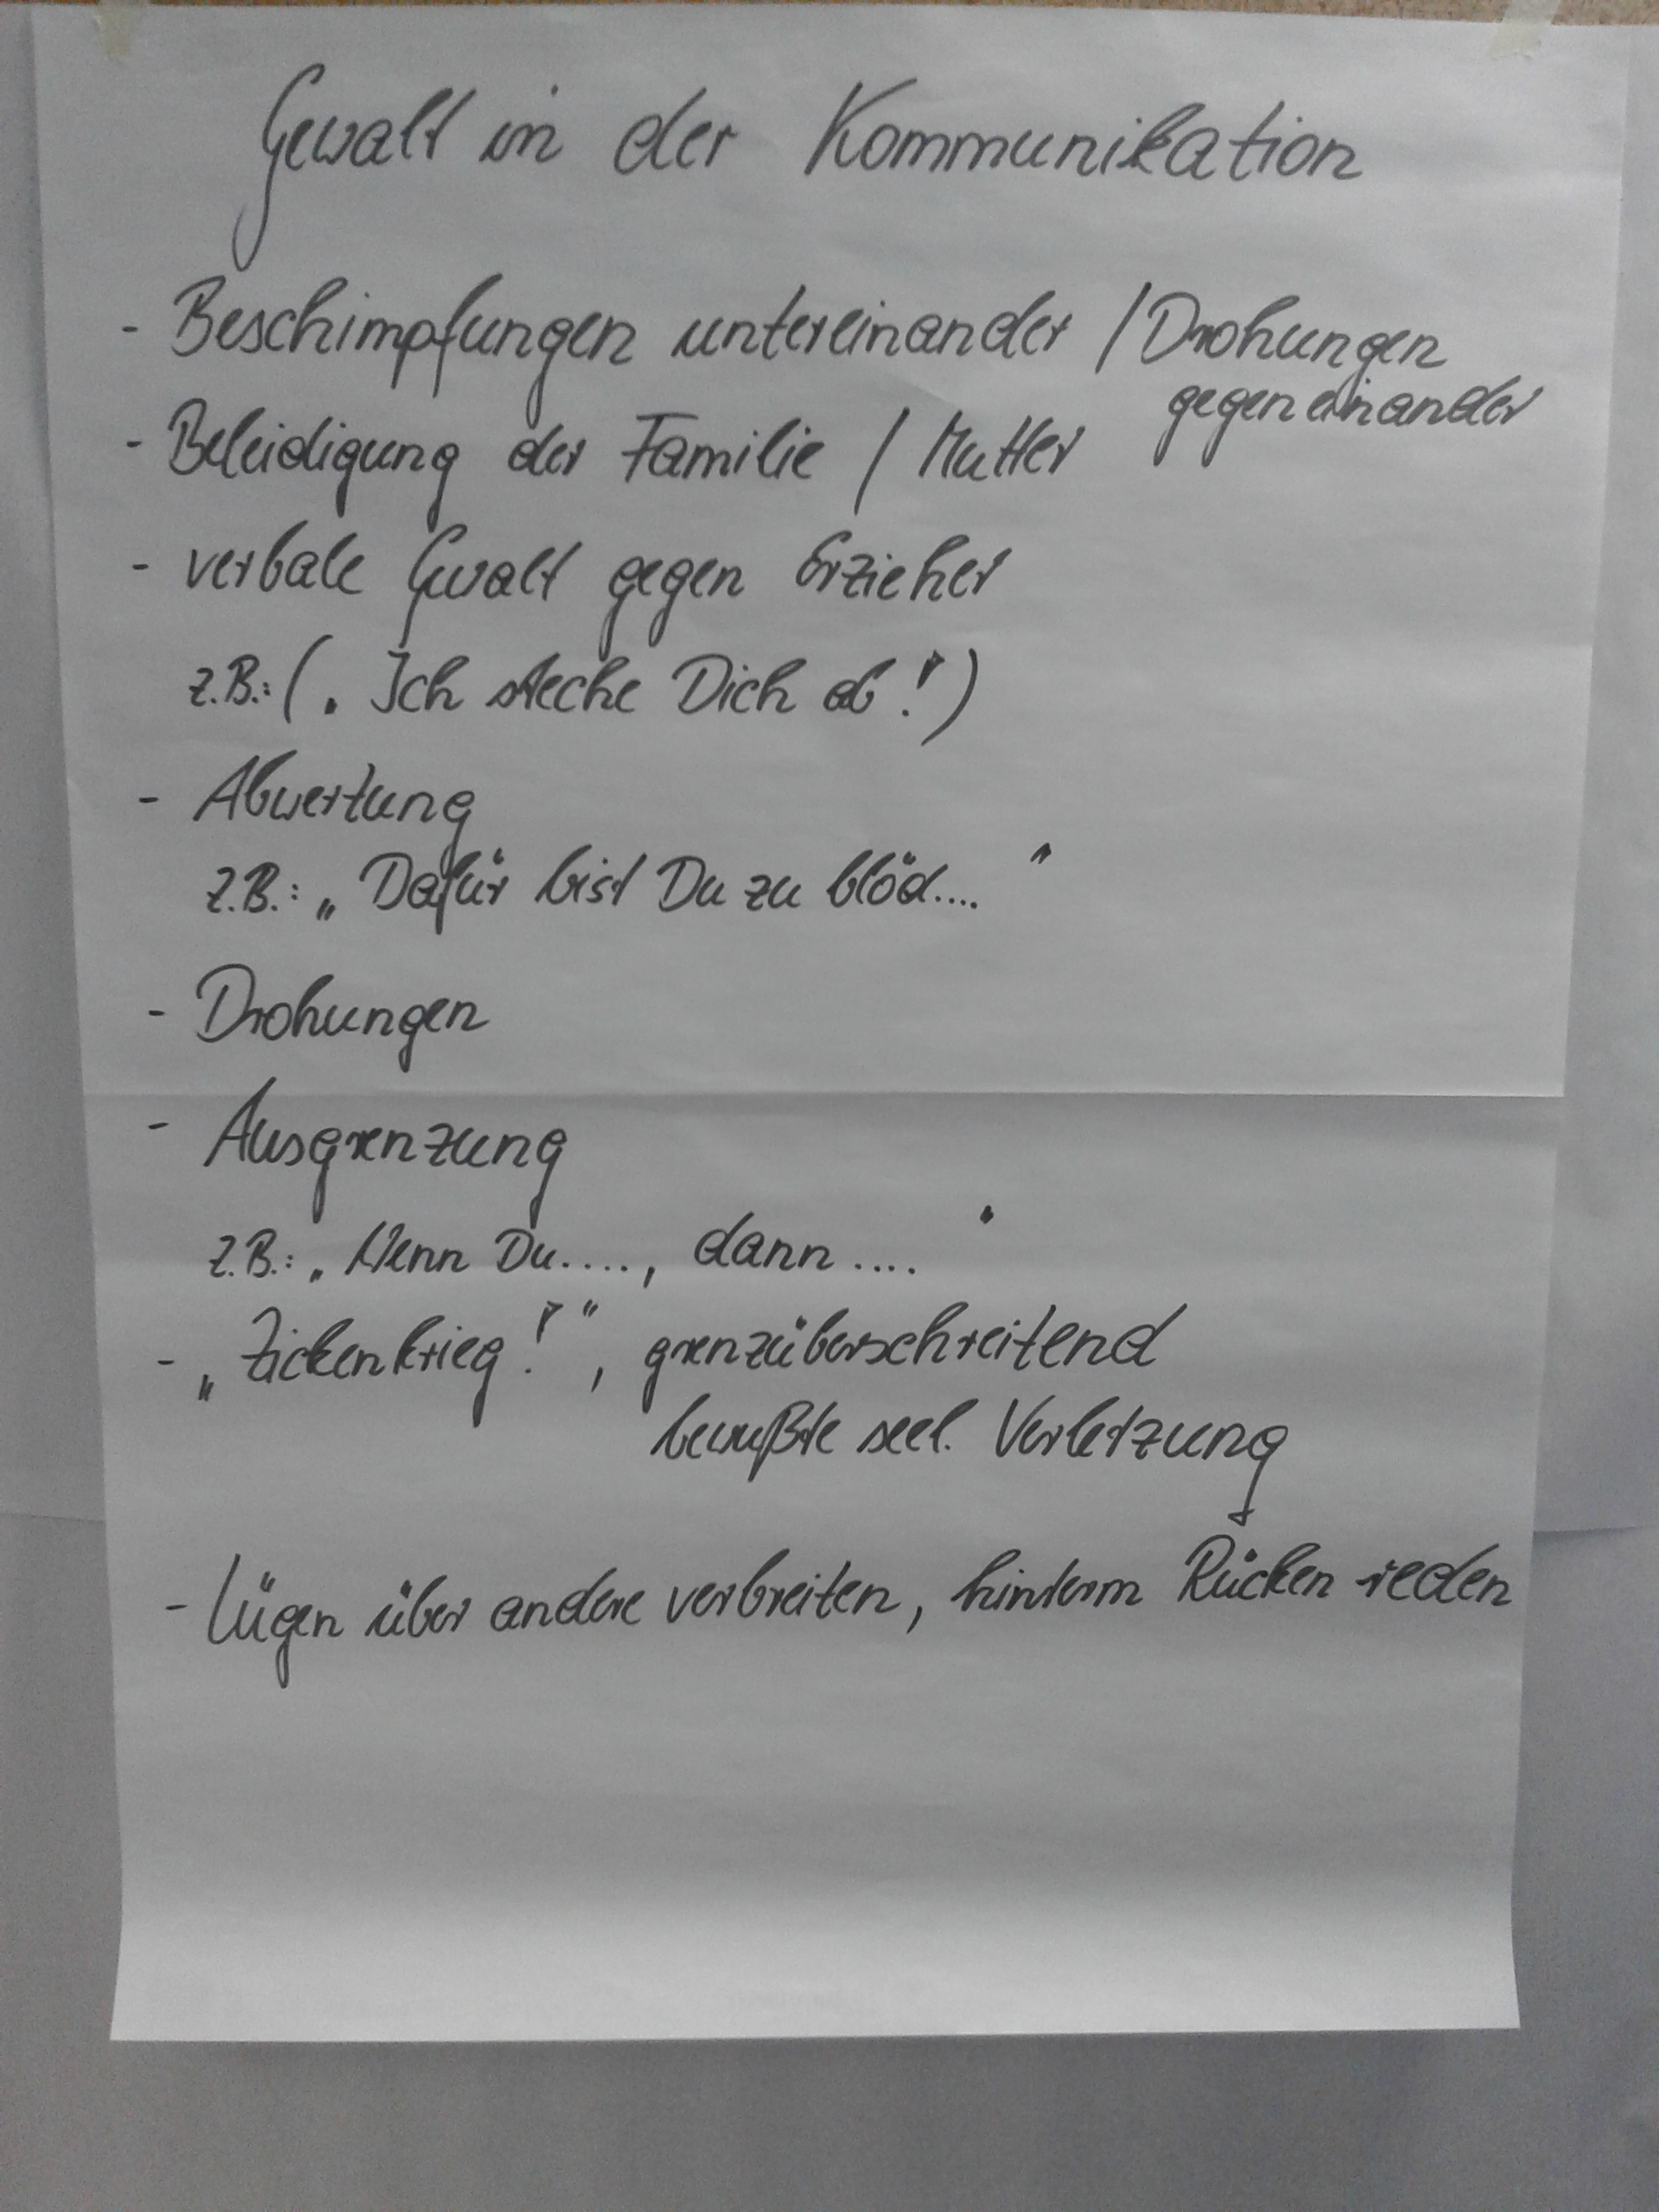 Gewalt in der Kommunikation
- Beschimpfungen untereinander / Drohungen
gegeneinander
- Beleidigung der Familie / Mutter
- verbale Gewalt gegen Erzieher
z.B.: (. Ich steche Dich ab!)
- Abwertung
z.B.: „Dafür bist Du zu blöd...."
- Drohungen
- Ausgrenzung
z.B.: „Wenn Du...., dann ...."
- „Zickenkrieg!", grenzüberschreitend
bewußte seel. Verletzung
- Lügen über andere verbreiten, hinterm Rücken reden